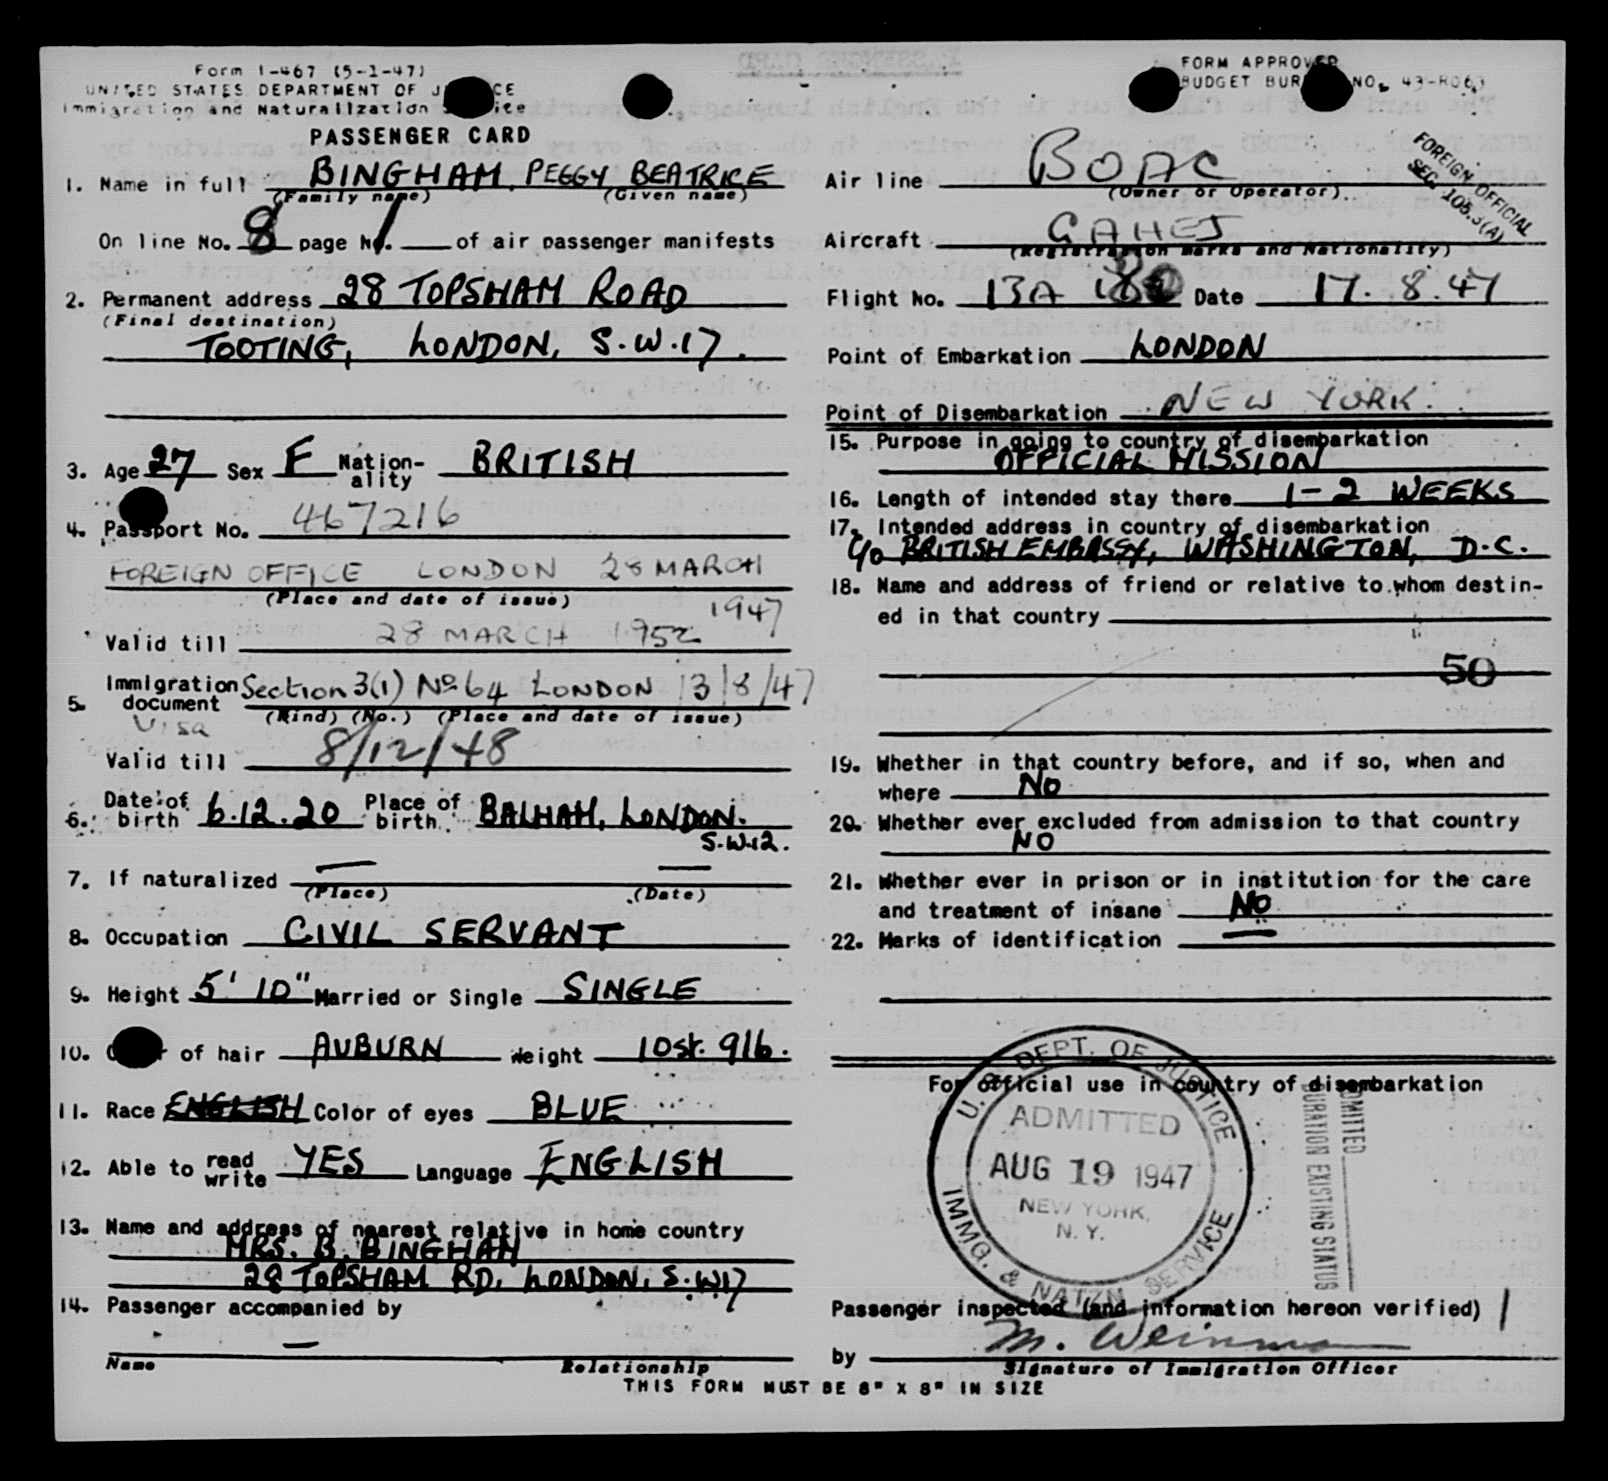 Form I-467 (5-1-47)
UNITED STATES DEPARTMENT OF J CE
Immigration and Naturalization S ice
PASSENGER CARD
1. Name in full BINGHAM, PEGGY BEATRICE
(Family name) (Given name)
On line No. 8 page No. 1 of air passenger manifests
2. Permanent address 28 TOPSHAM ROAD
(Final destination)
TOOTING, LONDON, S.W.17.
3. Age 27 Sex F Nation-ality BRITISH
4. Passport No. 467216
FOREIGN OFFICE LONDON 28 MARCH
(Place and date of issue) 1947
Valid till 28 MARCH 1952
5. Immigration document Section 3(1) No 64 LONDON 13/8/47
Visa (Kind) (No.) (Place and date of issue)
Valid till 8/12/48
6. Date of birth 6.12.20 Place of birth BALHAM, LONDON.
S.W.12.
7. If naturalized — —
(Place) (Date)
8. Occupation CIVIL SERVANT
9. Height 5' 10" Married or Single SINGLE
10. C r of hair AUBURN Weight 10st. 9lb.
11. Race ENGLISH Color of eyes BLUE
12. Able to read write YES Language ENGLISH
13. Name and address of nearest relative in home country
MRS. B. BINGHAM
28 TOPSHAM RD, LONDON, S.W17
14. Passenger accompanied by
—
Name Relationship
FORM APPROVED
BUDGET BUR NO. 43-R063
FOREIGN OFFICIAL
SEC. 105.3(A)
Air line BOAC
(Owner or Operator)
Aircraft GAHEJ
(Registration marks and Nationality)
Flight No. 13A Date 17.8.47
Point of Embarkation LONDON
Point of Disembarkation NEW YORK.
15. Purpose in going to country of disembarkation
OFFICIAL MISSION
16. Length of intended stay there 1-2 WEEKS
17. Intended address in country of disembarkation
c/o BRITISH EMBASSY, WASHINGTON, D.C.
18. Name and address of friend or relative to whom destin-
ed in that country
50
19. Whether in that country before, and if so, when and
where NO
20. Whether ever excluded from admission to that country
NO
21. Whether ever in prison or in institution for the care
and treatment of insane NO
22. Marks of identification —
For official use in country of disembarkation
U.S. DEPT. OF JUSTICE
ADMITTED
AUG 19 1947
NEW YORK,
N. Y.
IMMG. & NATZN SERVICE
DMITTED
DURATION EXISTING STATUS
Passenger inspected (and information hereon verified)
by M. Weinman
Signature of Immigration Officer
THIS FORM MUST BE 8" X 8" IN SIZE